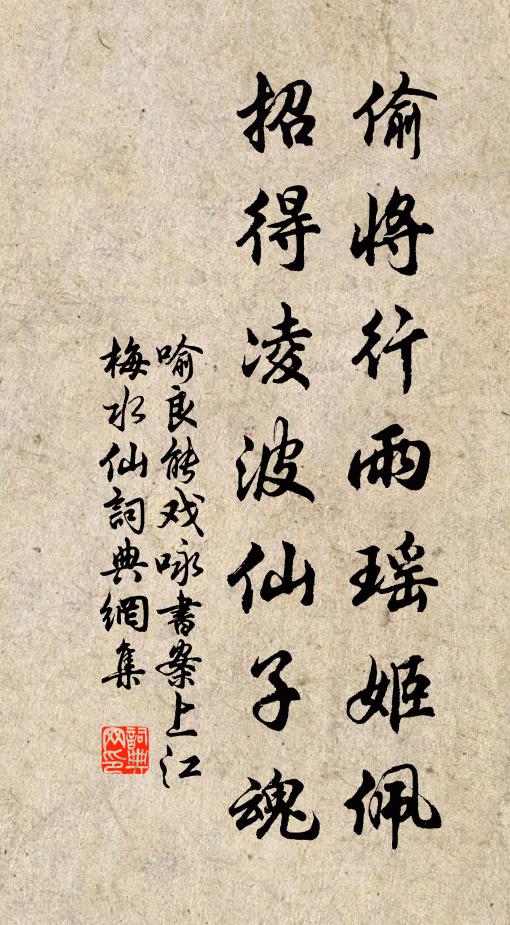 偷将行雨瑶姬佩
招得凌波仙子魂
喻良能戏咏書案上江
梅水仙詞典網集
詞典
网印